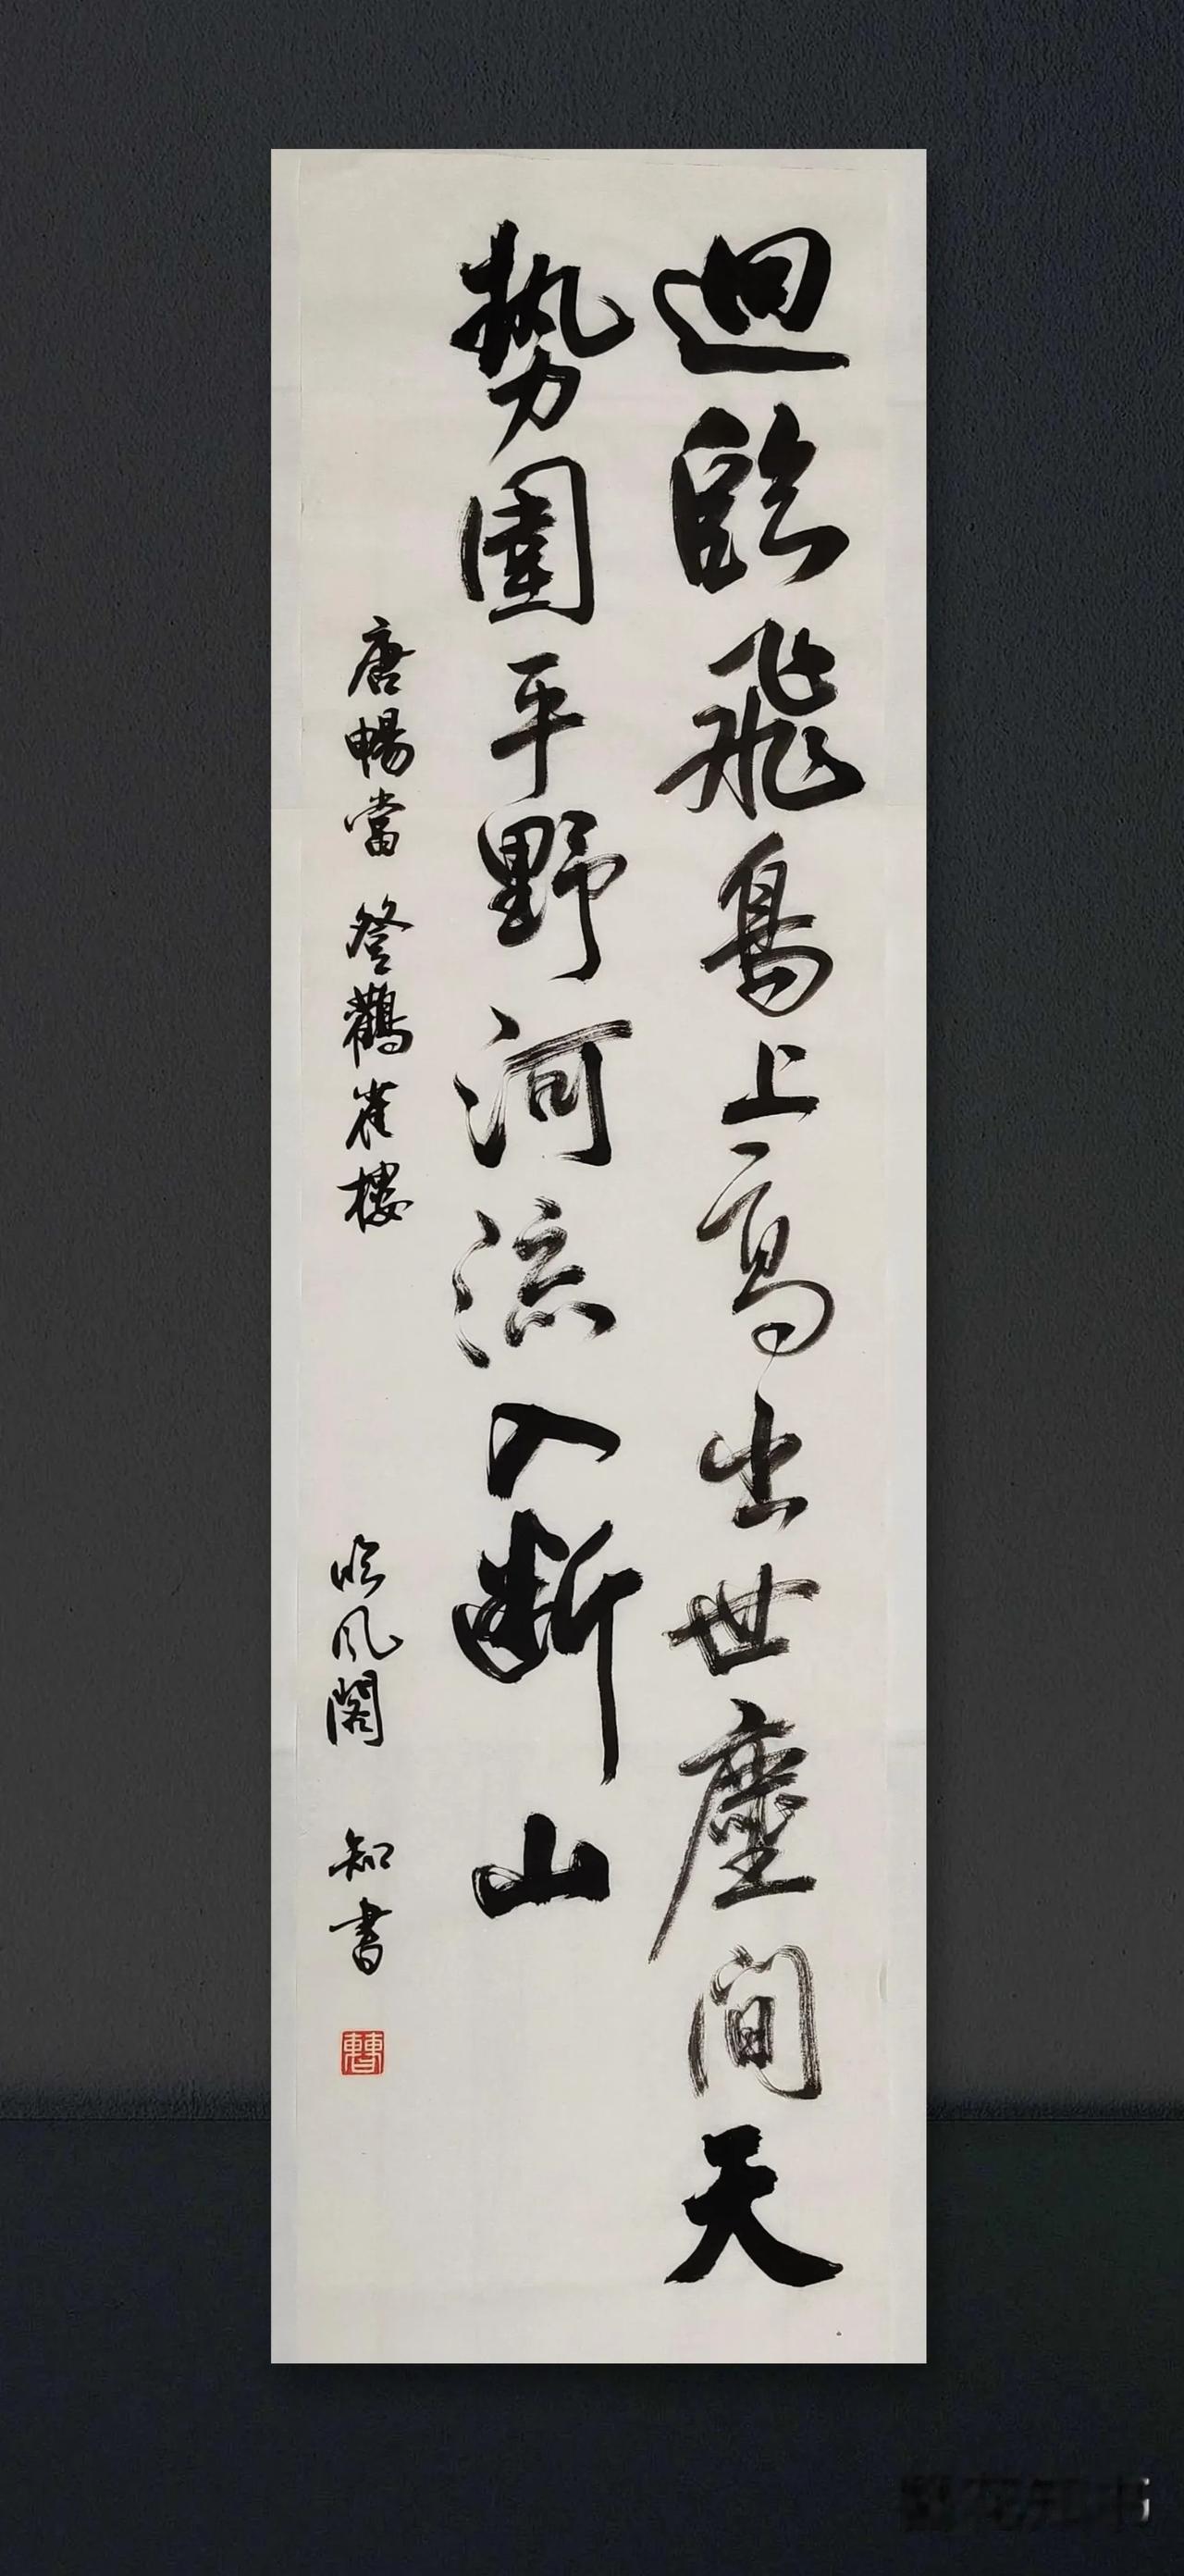 迥臨飛鳥上高出世塵間天
勢圍平野河流入斷山
唐暢當 登鸛雀樓
临风閣 知書